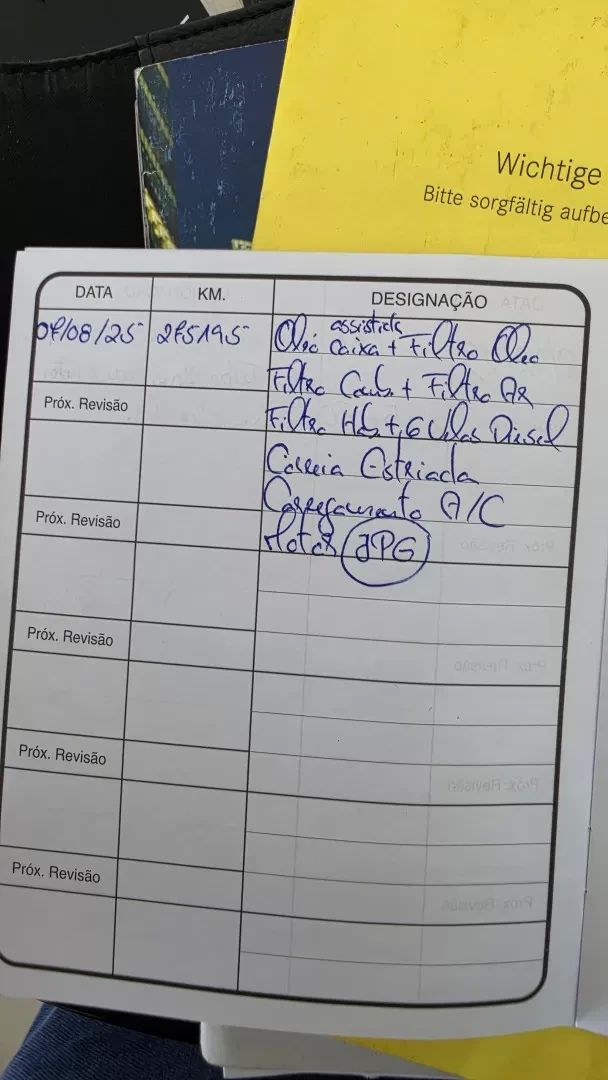 Wichtige
Bitte sorgfältig aufbe
DATA KM. DESIGNAÇÃO
07/08/25 275195 Oleo assistida caixa + Filtro Oleo
Filtro Comb. + Filtro AR
Próx. Revisão
Filtro Hab. + 6 Velas Diesel
Correia Estriada
Carregamento A/C
Próx. Revisão
Motor JPG
Próx. Revisão
Próx. Revisão
Próx. Revisão